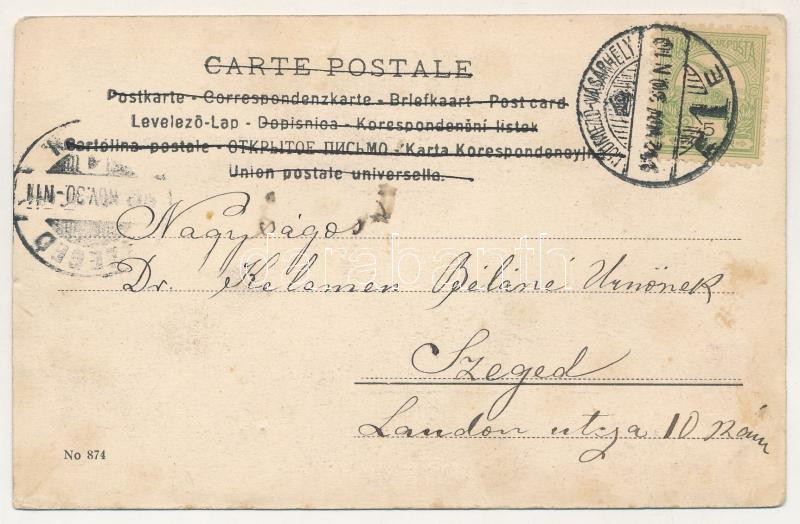 CARTE POSTALE
Postkarte - Correspondenzkarte - Briefkaart - Post card
Levelezõ-Lap - Dopisnica - Korespondenční listek
Cartolina postale - ОТКРЫТОЕ ПИСЬМО - Karta Korespondencyjna
Union postale universella.
HÓDMEZŐ-VÁSÁRHELY
SZEGED
NOV.30
Nagyságos
Dr. Kelemen Béláné Urnőnek
Szeged
Landon utza 10 szám
No 874
darabanth